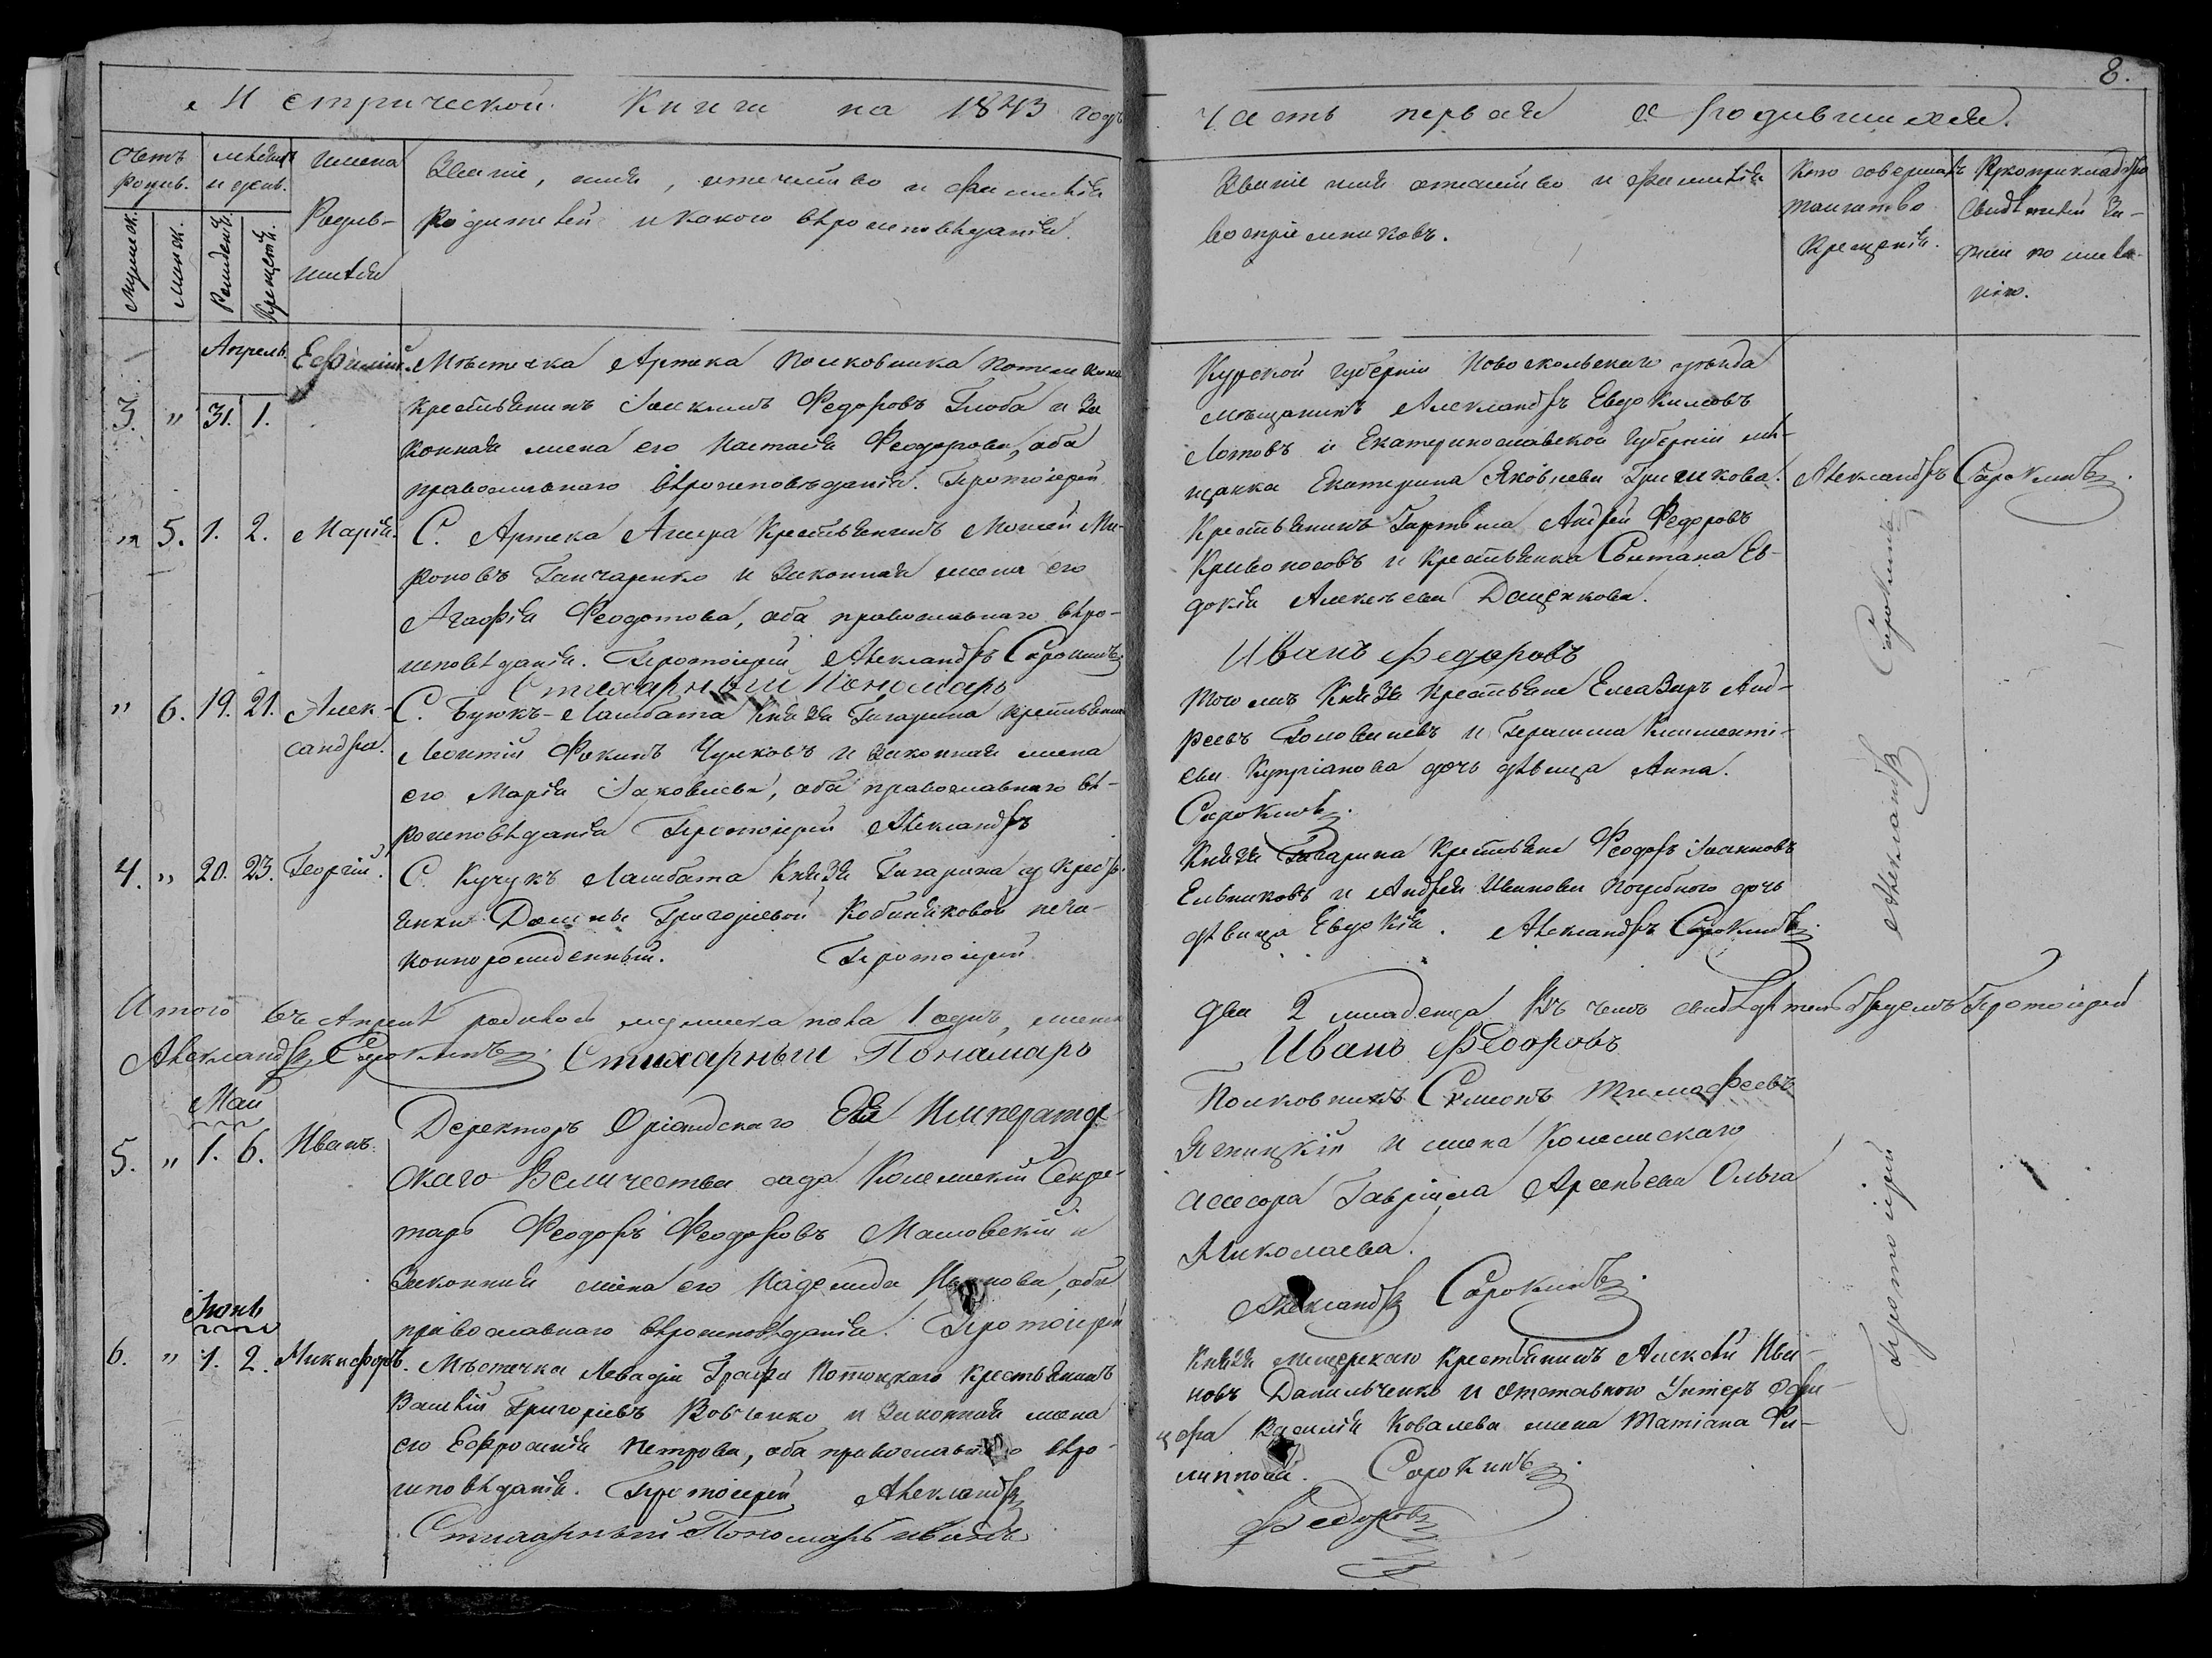 8.
Метрической Книги на 1843 годъ
Часть первая о Родившихся.
Счетъ родив.
Мужеск.
Женск.
месяцъ и день.
Рожденія.
Крещенія.
имена Родив-
шихся
Званіе, имя, отечество и Фамилія
Родителей и какого вѣроисповѣданія.
Званіе имя отечество и Фамилія
воспріемниковъ.
Кто совершалъ
таинство
Крещенія.
Рукоприкладство
Свидѣтелей за-
писи по жела-
нію.
Апрель
3. " 31. 1. Ефимій. Мѣстечка Артека Полковника Потемкина
крестьянинъ Іоакимъ Федоровъ Глоба и За
конная жена его Настасія Феодорова, оба
православнаго вѣроисповѣданія. Протоіерей
Курской губерніи Новоскольскаго уѣзда
мѣщанинъ Александръ Евдокимовъ
Лотовъ и Екатеринославской Губерніи мѣ-
щанка Екатерина Яковлева Гришкова.
Александръ Сорокинъ.
" 5. 1. 2. Марія. С. Артека Ашера Крестьянинъ Моисей Ми-
роновъ Ганчаренко и Законная жена его
Агафія Феодотова, оба православнаго вѣро-
исповѣданія. Протоіерей Александръ Сорокинъ
Стихарный Пономарь
Крестьянинъ Гартвиса Андрей Федоровъ
Кривоносовъ и Крестьянка Солтана Ев-
докія Алексѣева Даценкова.
Иванъ Федоровъ
" 6. 19. 21. Алек-
сандра. С. Буюкъ-Ламбата Князя Гагарина крестьянинъ
Леонтій Фокинъ Чулковъ и Законная жена
его Марія Іаковлева, оба православнаго вѣ-
роисповѣданія Протоіерей Александръ
того жъ Князя Крестьяне Елеазаръ Анд-
реевъ Головиневъ и Герасима Климентi-
ева Купріанова дочь дѣвица Анна.
Сорокинъ.
4. " 20. 23. Георгій. С. Кучукъ Ламбата Князя Гагарина у Крест-
янки Домны Григоріевой Кобиляковой неза-
коннорожденный. Протоіерей
Князя Гагарина Крестьяне Феодоръ Іоанновъ
Ельниковъ и Андрея Иванова Погребного дочь
дѣвица Евдокія. Александръ Сорокинъ.
Итого въ Апрелѣ родилось мужеска пола 1 одинъ, женска
два 2 младенца Въ чемъ свидѣтельствуемъ Протоіерей
Александръ Сорокинъ. Стихарный Понамарь
Иванъ Федоровъ
Май
5. " 1. 6. Иванъ. Деректоръ Оріандскаго Ея Император
скаго Величества сада Колежскій Секре-
тарь Феодоръ Феодоровъ Маловскій и
Законная жена его Надежда Иванова, оба
православнаго вѣроисповѣданія. Протоіерей
Полковникъ Семіонъ Тимофеевъ
Ягницкій и жена Колежскаго
Асесора Гавріила Арсеньева Ольга
Николаева.
Александръ Сорокинъ.
Іюнь
6. " 1. 2. Никифоръ. Мѣстечка Левадіи Графа Потоцкаго Крестьянинъ
Василій Григоріевъ Вовченко и Законная жена
его Ефросинія Петрова, оба православнаго вѣро-
исповѣданія. Протоіерей Александръ
Стихарный Пономарь Иванъ
Князя мещерскаго Крестьянинъ Алексѣй Ива-
новъ Данильченко и отставного Унтеръ Офи-
цера Василія Ковалева жена Татіана Фи-
липпова. Сорокинъ.
Федоровъ
Протоіерей Александръ Сорокинъ